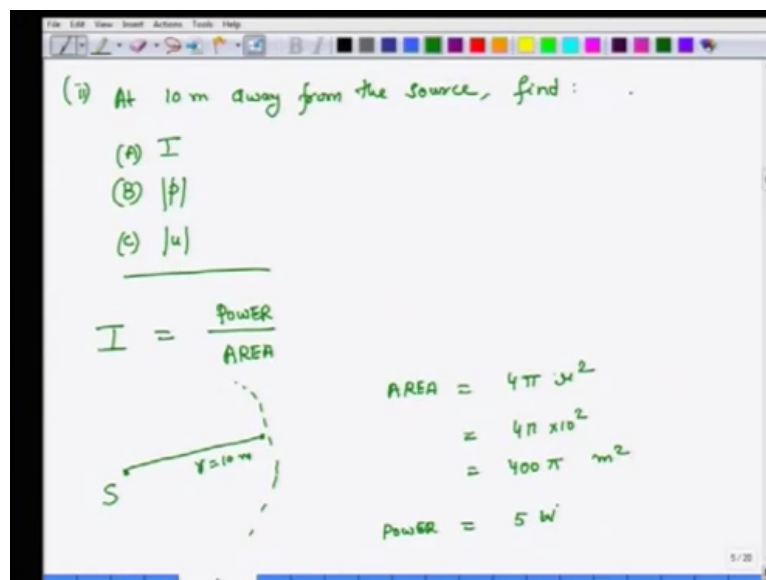 File Edit View Insert Actions Tools Help
(ii) At 10 m away from the source, find :
(A) I
(B) |p|
(C) |u|
I = POWER / AREA
AREA = 4π r²
= 4π × 10²
= 400 π m²
r = 10 m
S
POWER = 5 W
5 / 20